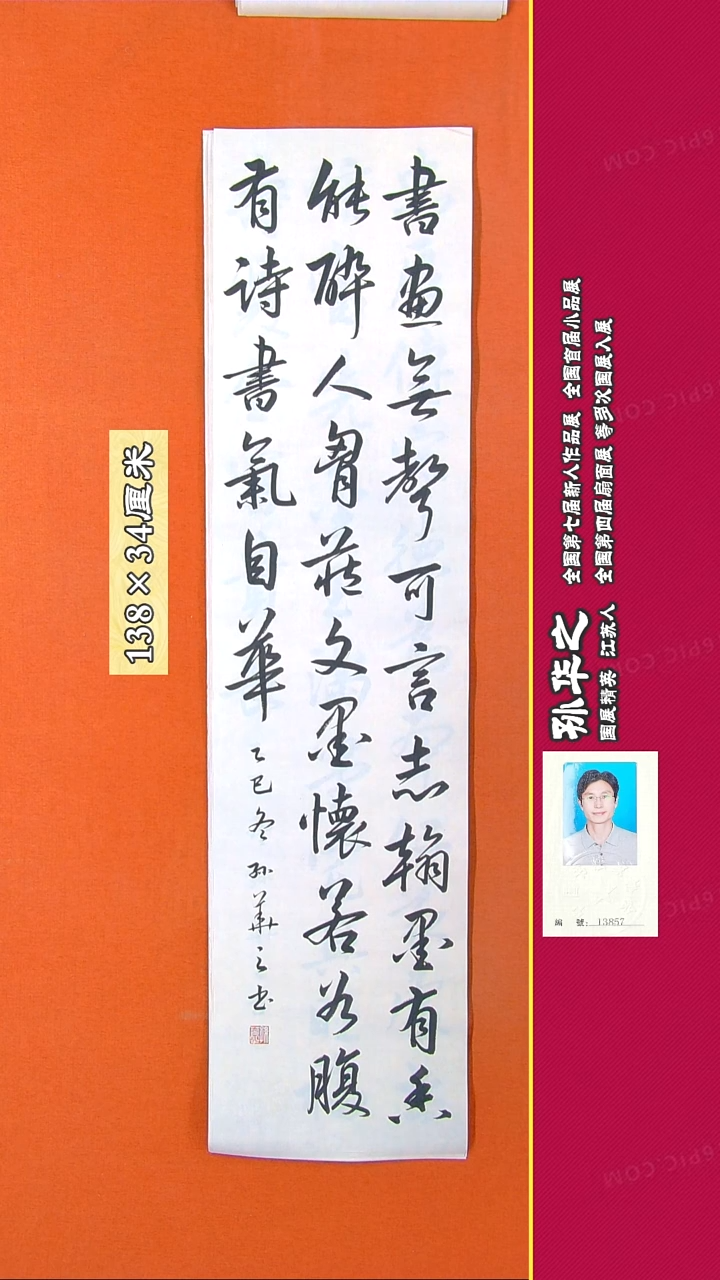 書画無聲可言志翰墨有香
能醉人胷藏文墨懷若谷腹
有詩書氣自華 乙巳冬 孙華之书
138×34厘米
孙华之 全国第七届新人作品展 全国首届小品展
国展精英 江苏人 全国第四届扇面展 等多次国展入展
編 號: 13857
6PIC.COM
6PIC.COM
6PIC.COM
6PIC.COM
6PIC.COM